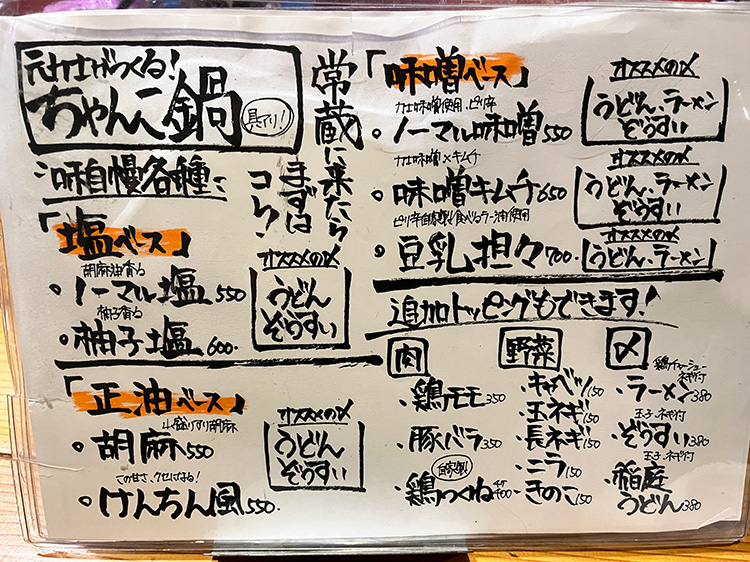 元力士がつくる!
ちゃんこ鍋
具入り!
味自慢各種
常蔵に来たら
まずは
コレ!
「塩ベース」
胡麻油香る
ノーマル塩550
柚子香る
柚子塩600
オススメの〆
うどん
ぞうすい
「正油ベース」
山盛りすり胡麻
胡麻550
この甘さ、クセになる!
けんちん風550
オススメの〆
うどん
ぞうすい
「味噌ベース」
力士味噌使用、ピリ辛
ノーマル味噌550
力士味噌×キムチ
味噌キムチ650
ピリ辛自家製食べるラー油使用
豆乳担々700
オススメの〆
うどん、ラーメン
ぞうすい
オススメの〆
うどん、ラーメン
ぞうすい
オススメの〆
うどん、ラーメン
追加トッピングもできます!
肉
鶏モモ350
豚バラ350
自家製
鶏つくね400
野菜
キャベツ150
玉ネギ150
長ネギ150
ニラ150
きのこ150
〆
鶏チャーシュー
ネギ付
ラーメン380
玉子、ネギ付
ぞうすい380
玉子、ネギ付
稲庭
うどん380